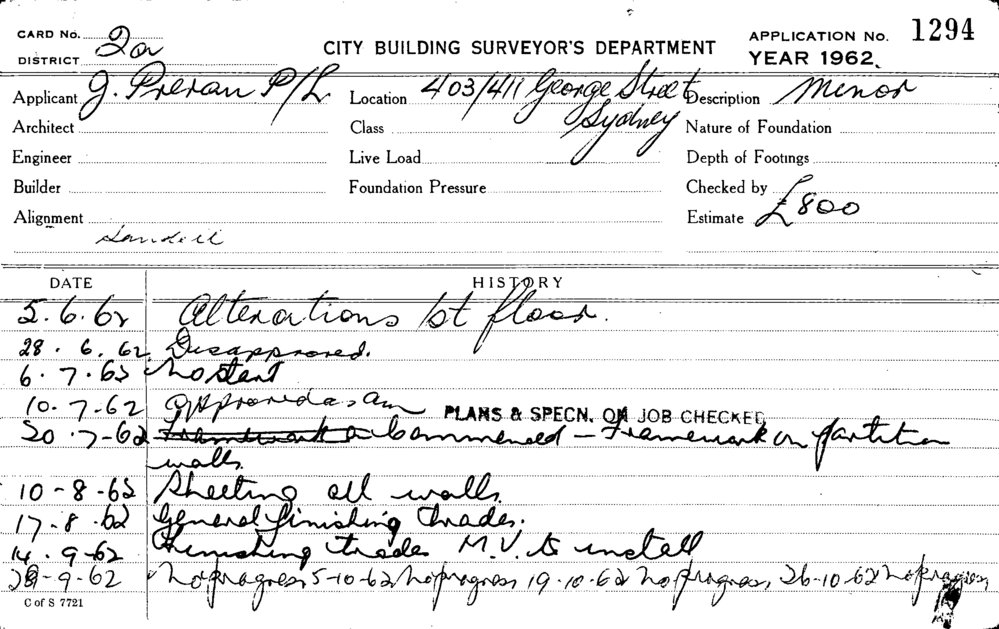 CARD No. 2a
DISTRICT
CITY BUILDING SURVEYOR'S DEPARTMENT
APPLICATION No. 1294
YEAR 1962.
Applicant J. Preran P/L. Location 403/411 George Street Sydney Description Minor
Architect Class Nature of Foundation
Engineer Live Load Depth of Footings
Builder Foundation Pressure Checked by
Alignment Estimate £800
DATE HISTORY
5.6.62 Alterations 1st floor.
28.6.62 Disapproved.
6.7.62 No start
10.7-62 Approved as am PLANS & SPECN. ON JOB CHECKED
20.7-62 Framework on Commenced – Framework on partition
walls.
10-8-62 Sheeting all walls.
17.8.62 General finishing trades.
14.9-62 Finishing trades M.V. to install
28-9-62 No progress, 5-10-62 No progress, 19.10.62 No progress, 26-10-62 No progress,
C of S 7721